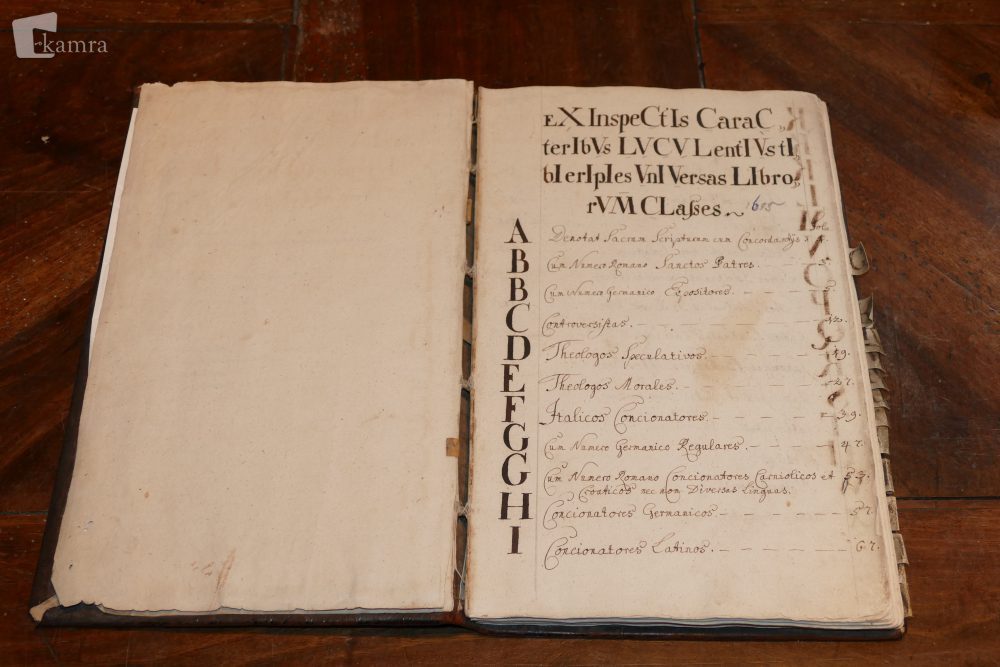 kamra
EX InspeCtIs CaraC
terIbVs LVCVLentIVs tI
bI erIpIes VnIVersas LIbro
rVM CLasses.
A Denotat Sacram Scripturam cum Concordantijs
B Cum Numero Romano Sanctos Patres.
B Cum Numero Germanico Expositores
C Controversistas. 12.
D Theologos Speculativos 19.
E Theologos Morales. 27.
F Italicos Concionatores. 39.
G Cum Numero Germanico Regulares. 47.
G Cum Numero Romano Concionatores Carniolicos et
Croaticos nec non Diversas Linguas.
H Concionatores Germanicos 57.
I Concionatores Latinos. 67.